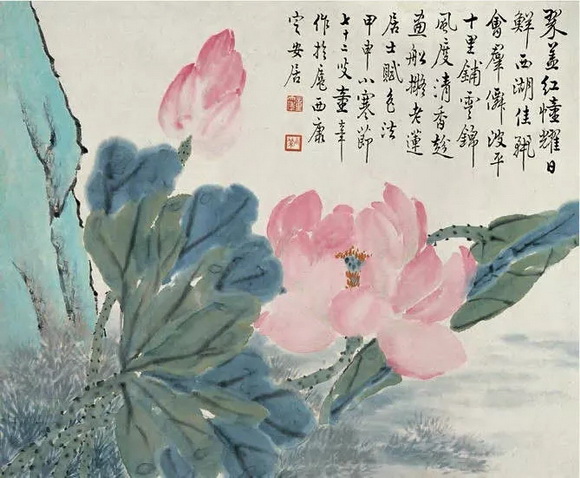 翠蓋紅幢耀日
鮮西湖佳麗
會羣僊波平
十里鋪雲錦
風度清香趁
畫船擬老蓮
居士賦色法
甲申小寒節
七十二叟童
作於扈西康
定安居